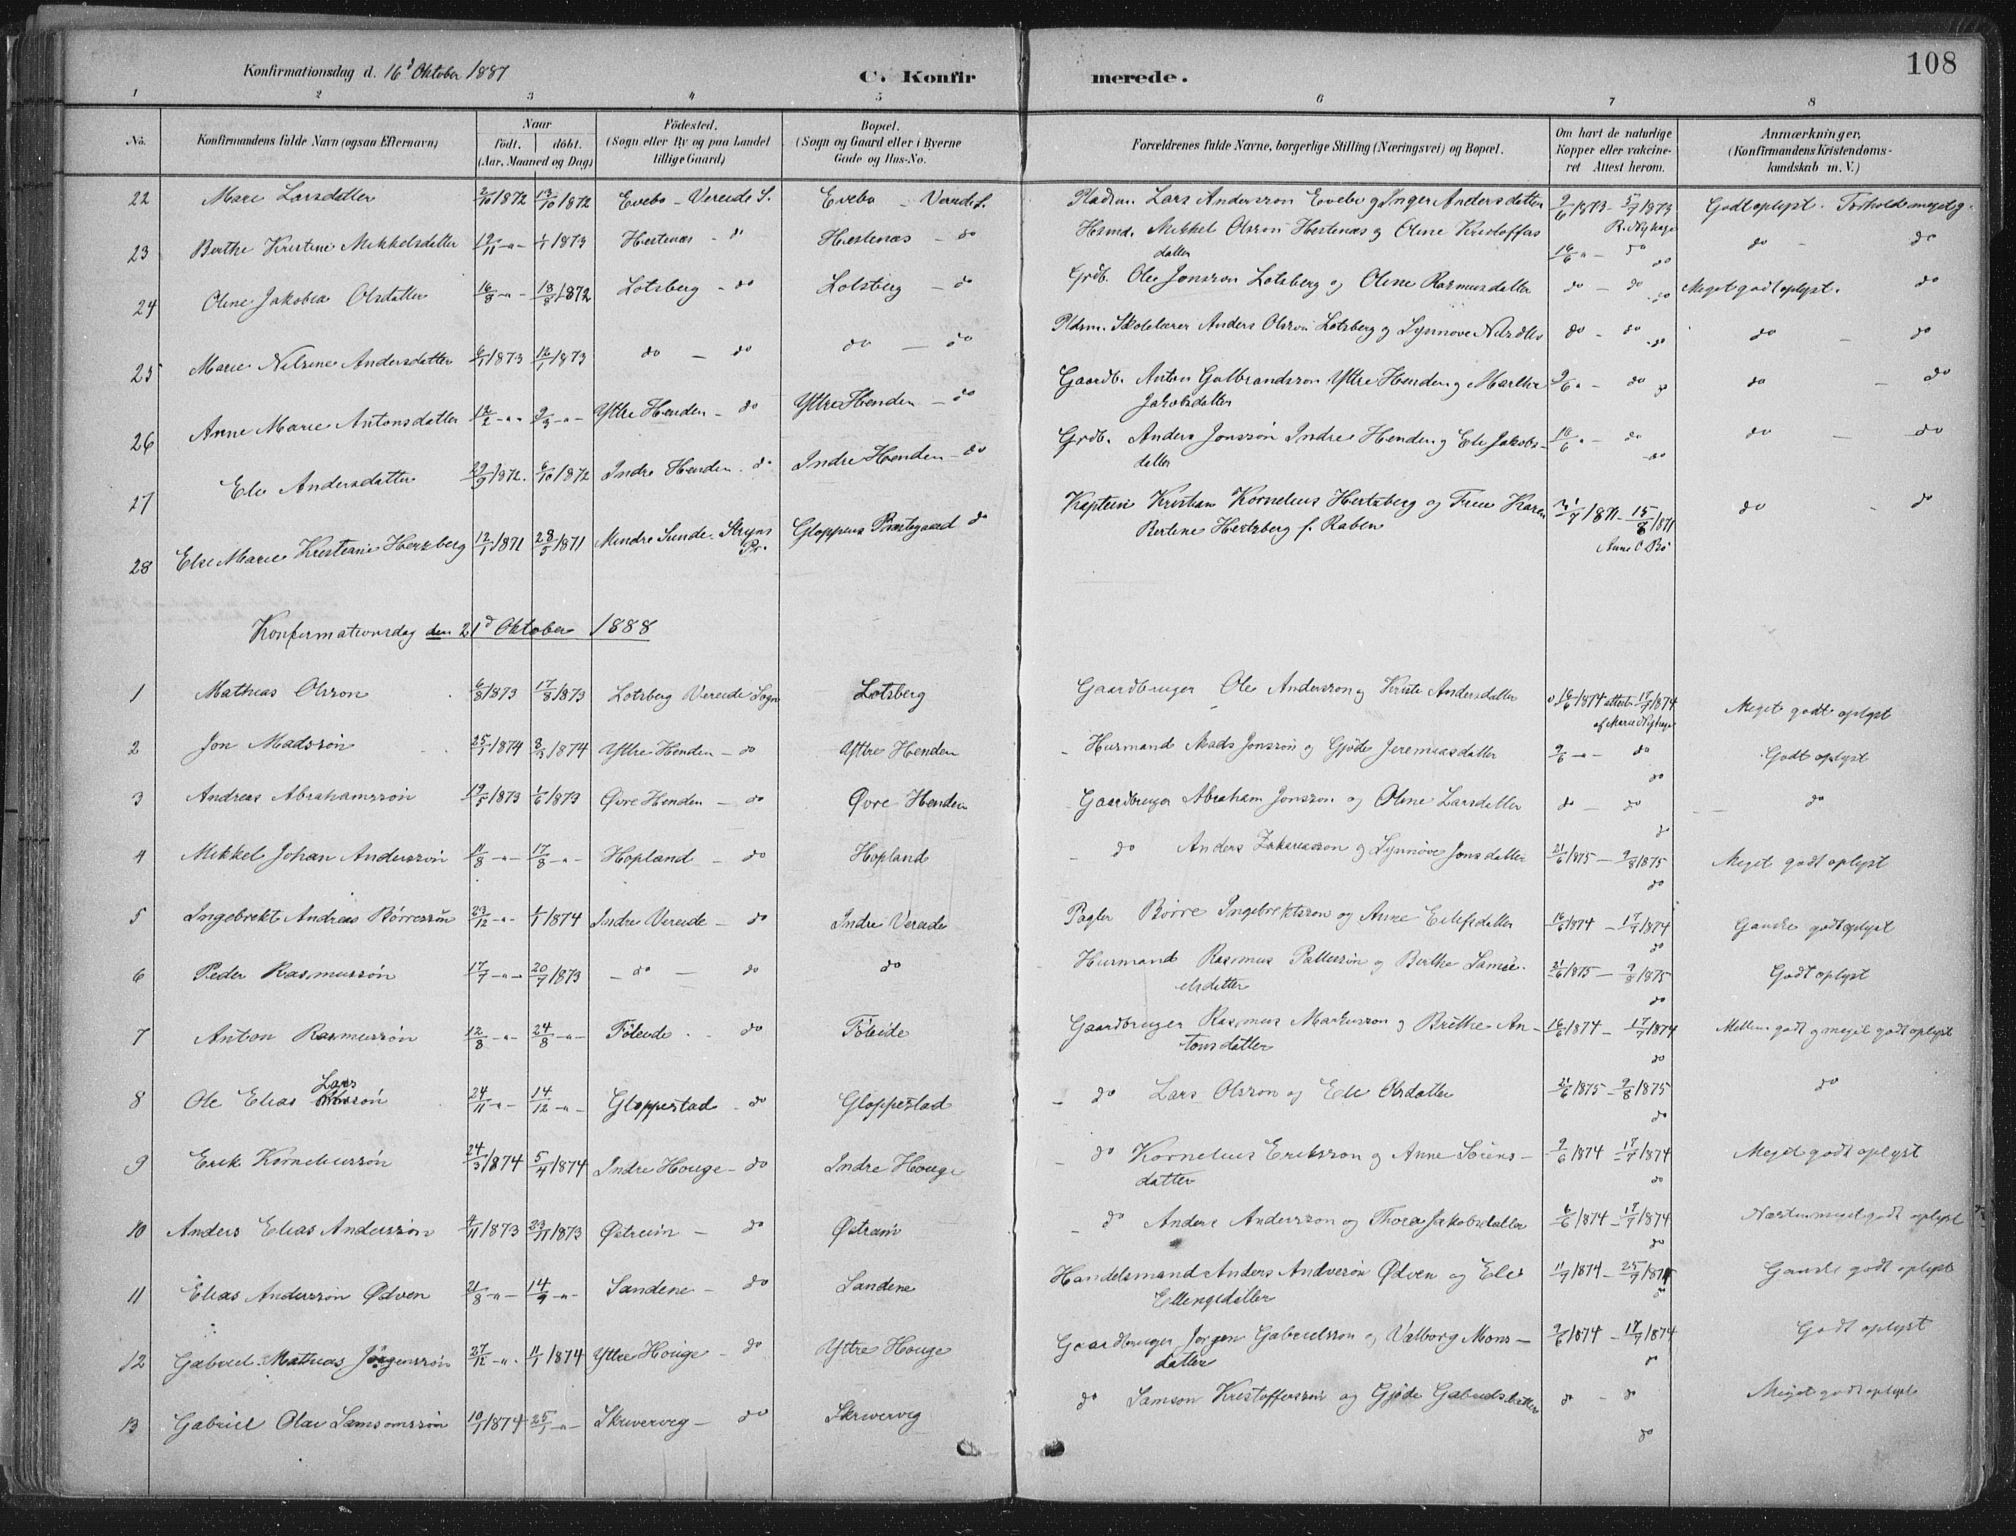 Konfirmationsdag d. 16d Oktober 1887
C. Konfirmerede.
108
1 2 3 4 5 6 7 8
No. Konfirmandens fulde Navn (ogsaa Efternavn) Naar födt. döbt. (Aar, Maaned og Dag) Födested. (Sogn eller By og paa Landet tillige Gaard) Bopæl. (Sogn og Gaard eller i Byerne Gade og Hus-No. Forældrenes fulde Navne, borgerlige Stilling (Næringsvei) og Bopæl. Om havt de naturlige Kopper eller vakcineret Attest herom. Anmærkninger. (Konfirmandens Kristendomskundskab m. V.)
22 Mari Larsdatter 2/10 1872 13/10 1872 Evebø - Vereide S. Evebø - Vereide S. Pladsm. Lars Anderssøn Evebø og Inger Andersdatter 9/6 1873 - 5/7 1873 R. Nyhage Godt oplyst. Forhold meget g.
23 Berthe Kristine Mikkelsdatter 19/11 -"- 1/1 1873 Hestenæs - do Hestenæs - do Husmd. Mikkel Olsson Hestenæs og Oline Kristoffersdatter 16/6 " - do do do - do
24 Oline Jakobea Olsdatter 16/8 -"- 18/8 1872 Lotsberg - do Lotsberg - do Grdb. Ole Jonssøn Lotsberg og Oline Rasmusdatter do - do do Meget godt oplyst. do
25 Marie Nilsine Andersdatter 6/1 1873 12/1 1873 do - do do - do Pldsm. Skolelærer Anders Olssøn Lotsberg og Synnøve Nilsdtr do - do do do - do
26 Anne Marie Antonsdatter 12/2 -"- 9/3 -"- Yttre Henden - do Yttre Henden - do Gaardb. Anton Gulbrandssøn Yttre Henden og Marthe Jakobsdatter 9/6 " - do do do - do
27 Eli Andersdatter 29/9 1872. 6/10 1872 Indre Henden - do Indre Henden - do Grdb. Anders Jonssøn Indre Henden og Eli Jakobsdatter 16/6 " - do do do - do
28 Else Marie Kristiane Herzberg 12/1 1871 28/5 1871 Mindre Sunde. Stryns Pr. Gloppens Præstegaard do Kaptein Kristian Kornelius Hertzberg og Frue Karen Bertine Hertzberg f. Raben 1871 - 15/8 1871 Anne O. Bø do - do
Konfirmationsdag den 21d Oktober 1888
1 Mathias Olsson 6/8 1873 17/8 1873 Lotsberg Vereide Sogn Lotsberg Gaardbruger Ole Anderssøn og Kirsti Andersdatter 16/6 1874 attest 17/7 1874 af Marie Nyhage Meget godt oplyst
2 Jon Madssøn 25/1 1874 8/3 1874 Yttre Henden - do Yttre Henden - Husmand Mads Jonssøn og Gjøde Jeremiasdatter 9/6 -"- do do Godt oplyst
3 Andreas Abrahamssøn 19/5 1873 1/6 1873 Øvre Henden - do Øvre Henden Gaardbruger Abraham Jonssøn og Oline Larsdatter do - do do - do
4 Mikkel Johan Anderssøn 11/8 -"- 17/8 -"- Hopland - do Hopland - do Anders Zakariassøn og Synnøve Jonsdatter 21/6 1875 - 9/8 1875 do Meget godt oplyst
5 Ingebrekt Andreas Børressøn 23/12 -"- 1/1 1874 Indre Vereide - do Indre Vereide Børre Ingebrektssøn og Anne Eilefsdatter 16/6 1874 - 17/7 1874 do Ganske godt oplyst
6 Peder Rasmussøn 17/7 -"- 20/7 1873 - do - do do Husmand Rasmus Pallessøn og Berthe Samuelsdatter 21/6 1875 - 9/8 1875 do Godt oplyst
7 Anton Rasmussøn 12/8 -"- 24/8 -"- Føleide - do Føleide Gaardbruger Rasmus Markussøn og Brithe Antonsdatter 16/6 1874 - 17/7 1874 do Mellem godt og meget godt oplyst
8 Ole Elias Larssøn 24/11 -"- 14/12 -"- Gloppestad - do Gloppestad - do Lars Olsson og Eli Olsdatter 21/6 1875 - 9/8 1875 do do
9 Erik Korneliussøn 24/3 1874 5/4 1874 Indre Houge - do Indre Houge - do Kornelius Erikssøn og Anne Sørensdatter 9/6 1874 - 17/7 1874 do Meget godt oplyst
10 Anders Elias Anderssøn 4/11 1873 23/11 1873 Østreim - do Østreim - do Anders Anderssøn og Thora Jakobsdatter 6/6 1874 - 17/7 1874 do Næsten meget godt oplyst
11 Elias Anderssøn Ødven 21/8 -"- 14/9 -"- Sandene - do Sandene Handelsmand Anders Andersøn Ødven og Eli Ellingsdatter 11/7 1874 - 25/7 1874 do Ganske godt oplyst
12 Gabriel Mathias Jørgenssøn 27/12 -"- 11/1 1874 Yttre Houge - do Yttre Houge Gaardbruger Jørgen Gabrielssøn og Valborg Monsdatter 9/6 1874 - 17/7 1874 do Godt oplyst
13 Gabriel Olai Samsonssøn 10/1 1874 25/1 -"- Skrivervig - do Skrivervig do Samson Kristofferssøn og Gjøde Gabrielsdatter do - do do Meget godt oplyst